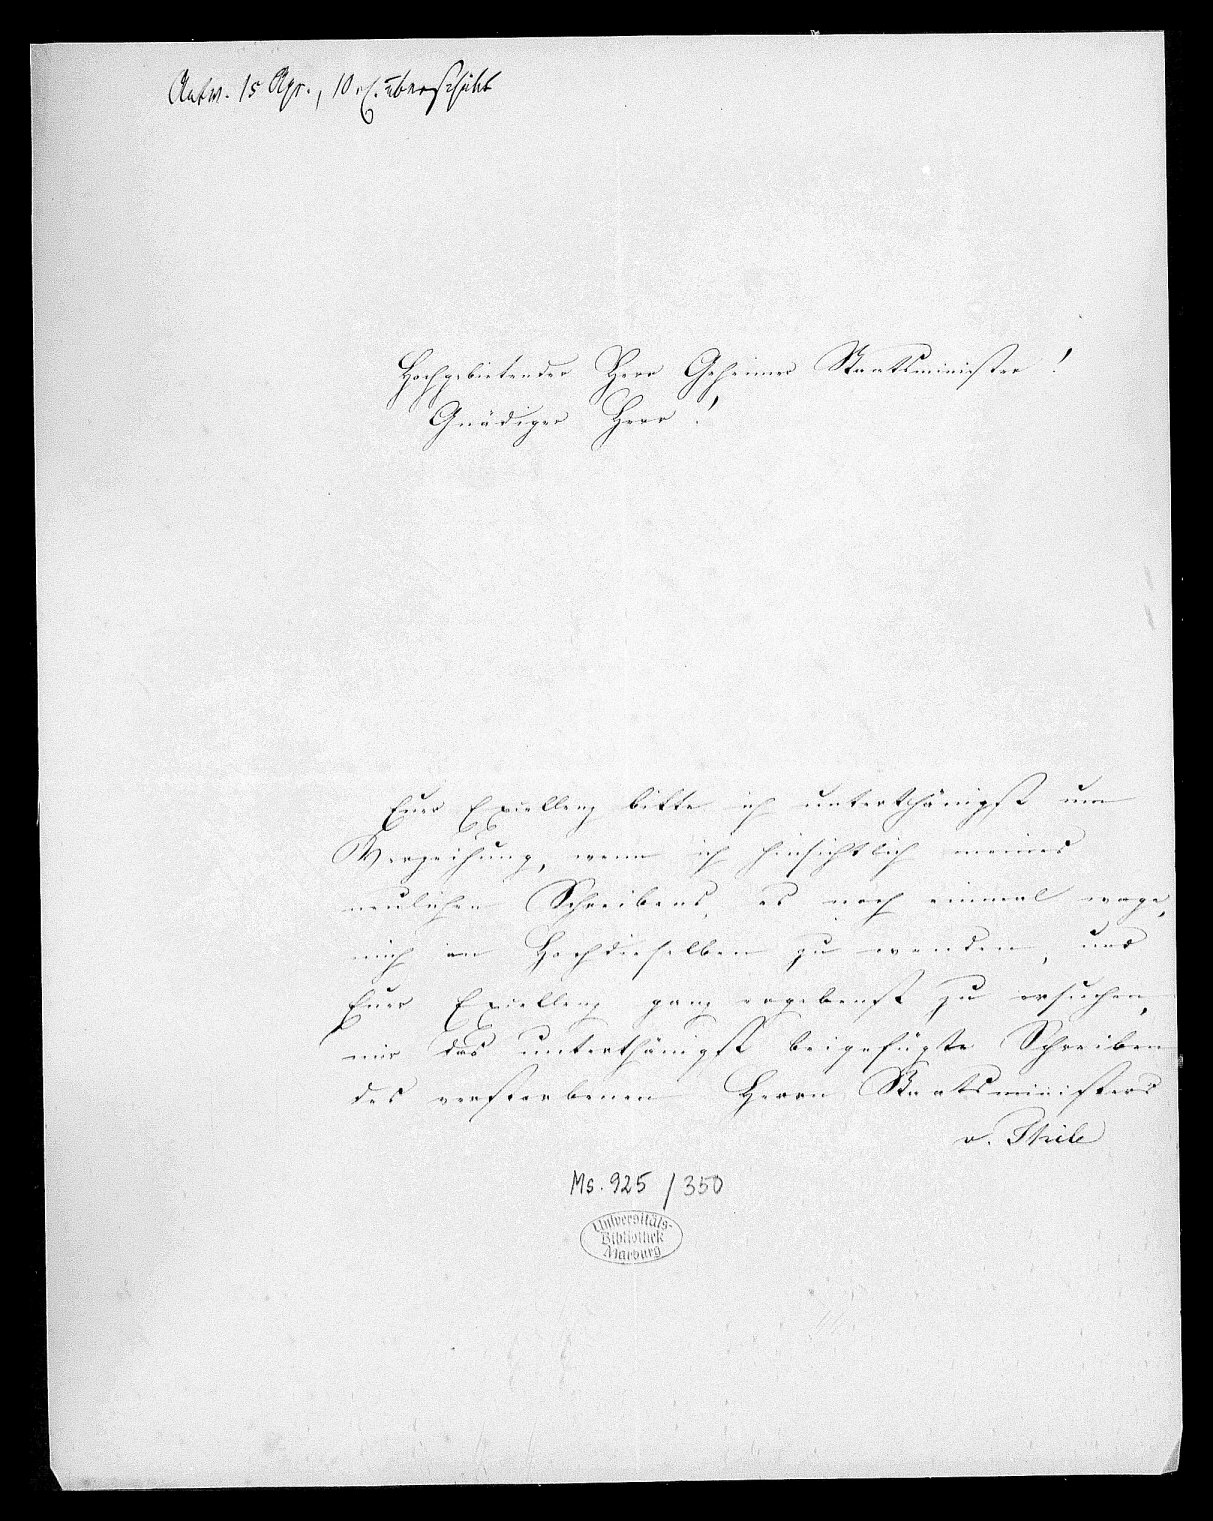 Antw. 15 Apr., 10 rℓ. überschickt
Hochgebietender Herr Geheimer Staatsminister!
Gnädiger Herr!
Euer Exzellenz bitte ich unterthänigst um
Verzeihung, wenn ich hinsichtlich meines
neulichen Schreibens, es noch einmal wage,
mich an Hochdieselben zu wenden, und
Euer Exzellenz ganz ergebenst zu ersuchen,
mir das unterthänigst beigefügte Schreiben
des verstorbenen Herrn Staatsministers
v. Thile
Ms. 925 / 350
Universitäts-
Bibliothek
Marburg